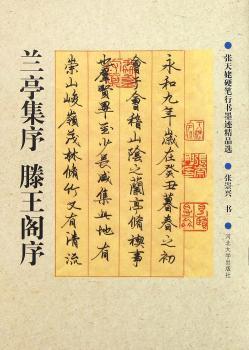 兰亭集序 滕王阁序
永和九年歲在癸丑暮春之初
會于會稽山陰之蘭亭脩禊事
也群賢畢至少長咸集此地有
崇山峻嶺茂林脩竹又有清流
●张天姥硬笔行书墨迹精品选
●张崇兴 书
●河北大学出版社